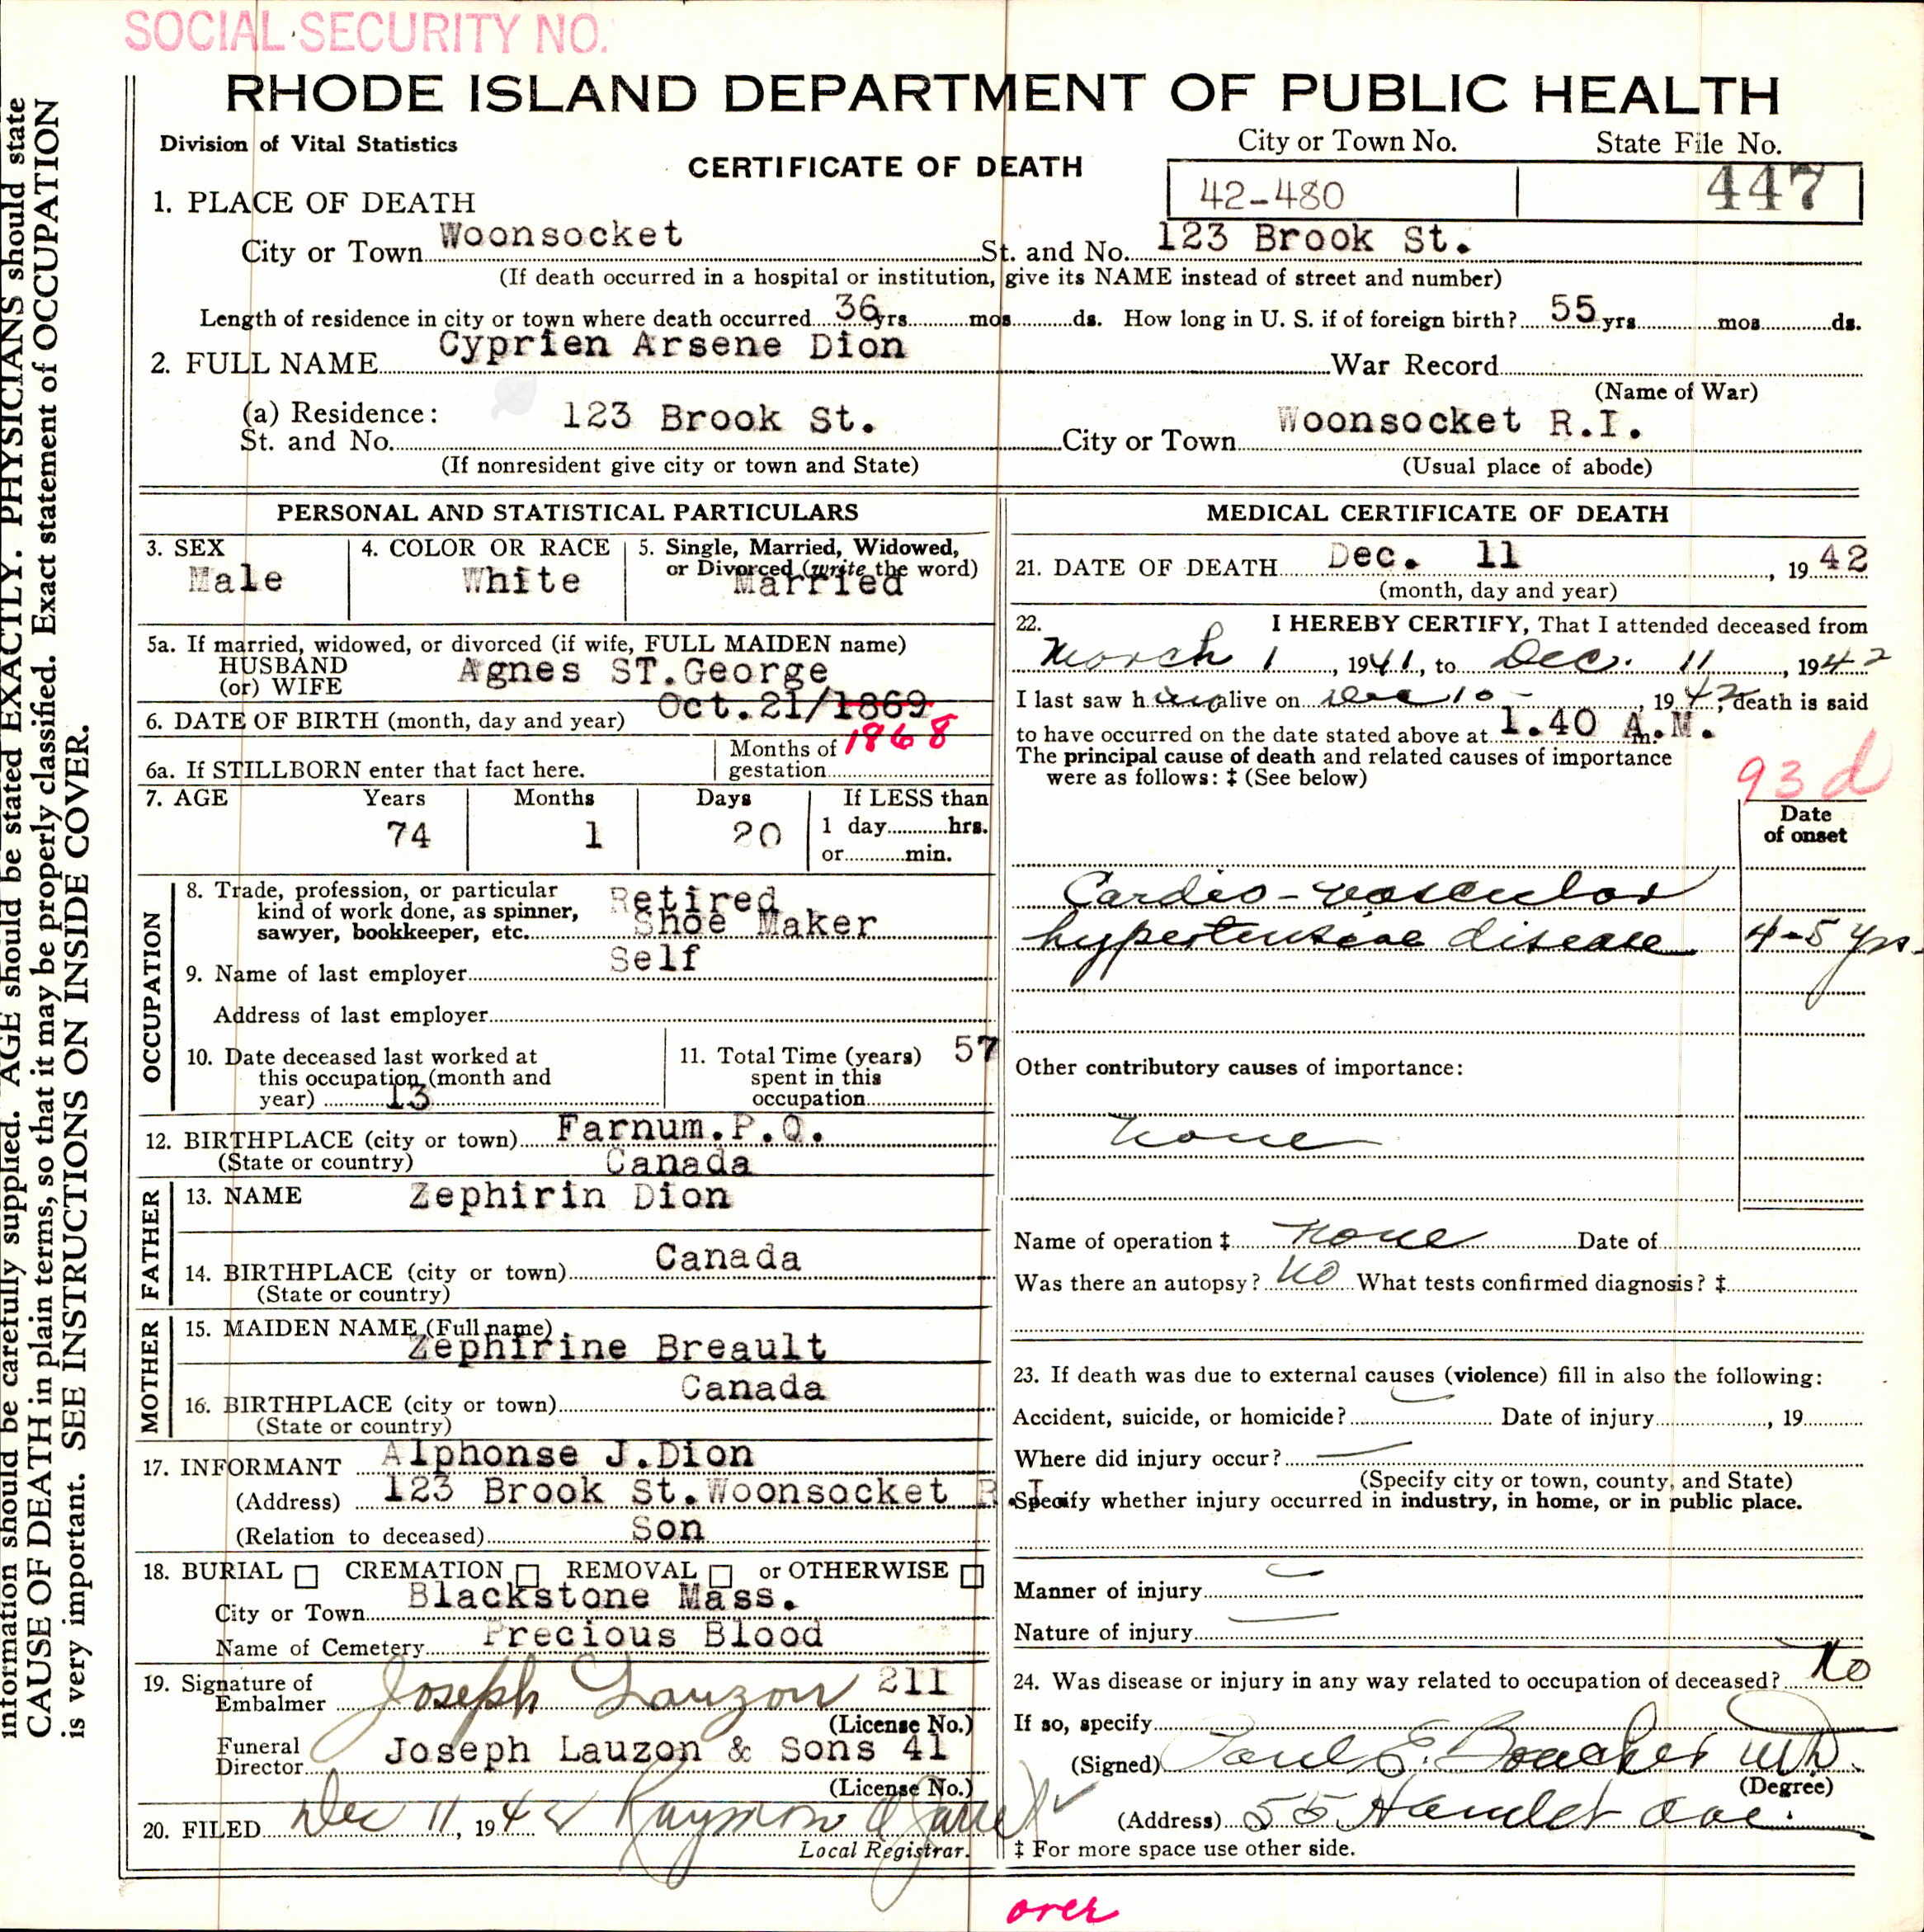 SOCIAL SECURITY NO.
RHODE ISLAND DEPARTMENT OF PUBLIC HEALTH
Division of Vital Statistics
CERTIFICATE OF DEATH
City or Town No. State File No.
42-480 447
1. PLACE OF DEATH
City or Town Woonsocket St. and No. 123 Brook St.
(If death occurred in a hospital or institution, give its NAME instead of street and number)
Length of residence in city or town where death occurred 36 yrs. mos. ds. How long in U. S. if of foreign birth? 55 yrs. mos. ds.
2. FULL NAME Cyprien Arsene Dion War Record
(Name of War)
(a) Residence:
St. and No. 123 Brook St. City or Town Woonsocket R.I.
(If nonresident give city or town and State) (Usual place of abode)
PERSONAL AND STATISTICAL PARTICULARS
3. SEX Male
4. COLOR OR RACE White
5. Single, Married, Widowed,
or Divorced (write the word)
Married
5a. If married, widowed, or divorced (if wife, FULL MAIDEN name)
HUSBAND
(or) WIFE Agnes ST.George
6. DATE OF BIRTH (month, day and year) Oct.21/1869
1868
6a. If STILLBORN enter that fact here. Months of
gestation
7. AGE Years Months Days If LESS than
74 1 20 1 day hrs.
or min.
OCCUPATION
8. Trade, profession, or particular
kind of work done, as spinner,
sawyer, bookkeeper, etc. Retired
Shoe Maker
9. Name of last employer Self
Address of last employer
10. Date deceased last worked at
this occupation (month and
year) 13
11. Total Time (years) 57
spent in this
occupation
12. BIRTHPLACE (city or town) Farnum.P.Q.
(State or country) Canada
FATHER
13. NAME Zephirin Dion
14. BIRTHPLACE (city or town) Canada
(State or country)
MOTHER
15. MAIDEN NAME (Full name)
Zephirine Breault
16. BIRTHPLACE (city or town) Canada
(State or country)
17. INFORMANT Alphonse J.Dion
(Address) 123 Brook St.Woonsocket R.I.
(Relation to deceased) Son
18. BURIAL CREMATION REMOVAL or OTHERWISE
City or Town Blackstone Mass.
Name of Cemetery Precious Blood
19. Signature of
Embalmer Joseph Lauzon 211
(License No.)
Funeral
Director Joseph Lauzon & Sons 41
(License No.)
20. FILED Dec 11, 1942
Local Registrar.
MEDICAL CERTIFICATE OF DEATH
21. DATE OF DEATH Dec. 11, 1942
(month, day and year)
22. I HEREBY CERTIFY, That I attended deceased from
March 1, 1941, to Dec. 11, 1942
I last saw him alive on Dec 10, 1942, death is said
to have occurred on the date stated above at 1.40 A.M. m.
The principal cause of death and related causes of importance
were as follows: ‡ (See below)
93d
Date
of onset
Cardio-vascular
hypertensive disease 4-5 yrs.
Other contributory causes of importance:
none
Name of operation ‡ none Date of
Was there an autopsy? no What tests confirmed diagnosis? ‡
23. If death was due to external causes (violence) fill in also the following:
Accident, suicide, or homicide? Date of injury, 19
Where did injury occur?
(Specify city or town, county, and State)
Specify whether injury occurred in industry, in home, or in public place.
Manner of injury
Nature of injury
24. Was disease or injury in any way related to occupation of deceased? No
If so, specify
(Signed) Paul E. Boucher MD.
(Degree)
(Address) 55 Hamlet Ave.
‡ For more space use other side.
over
information should be carefully supplied. AGE should be stated EXACTLY. PHYSICIANS should state
CAUSE OF DEATH in plain terms, so that it may be properly classified. Exact statement of OCCUPATION
is very important. SEE INSTRUCTIONS ON INSIDE COVER.